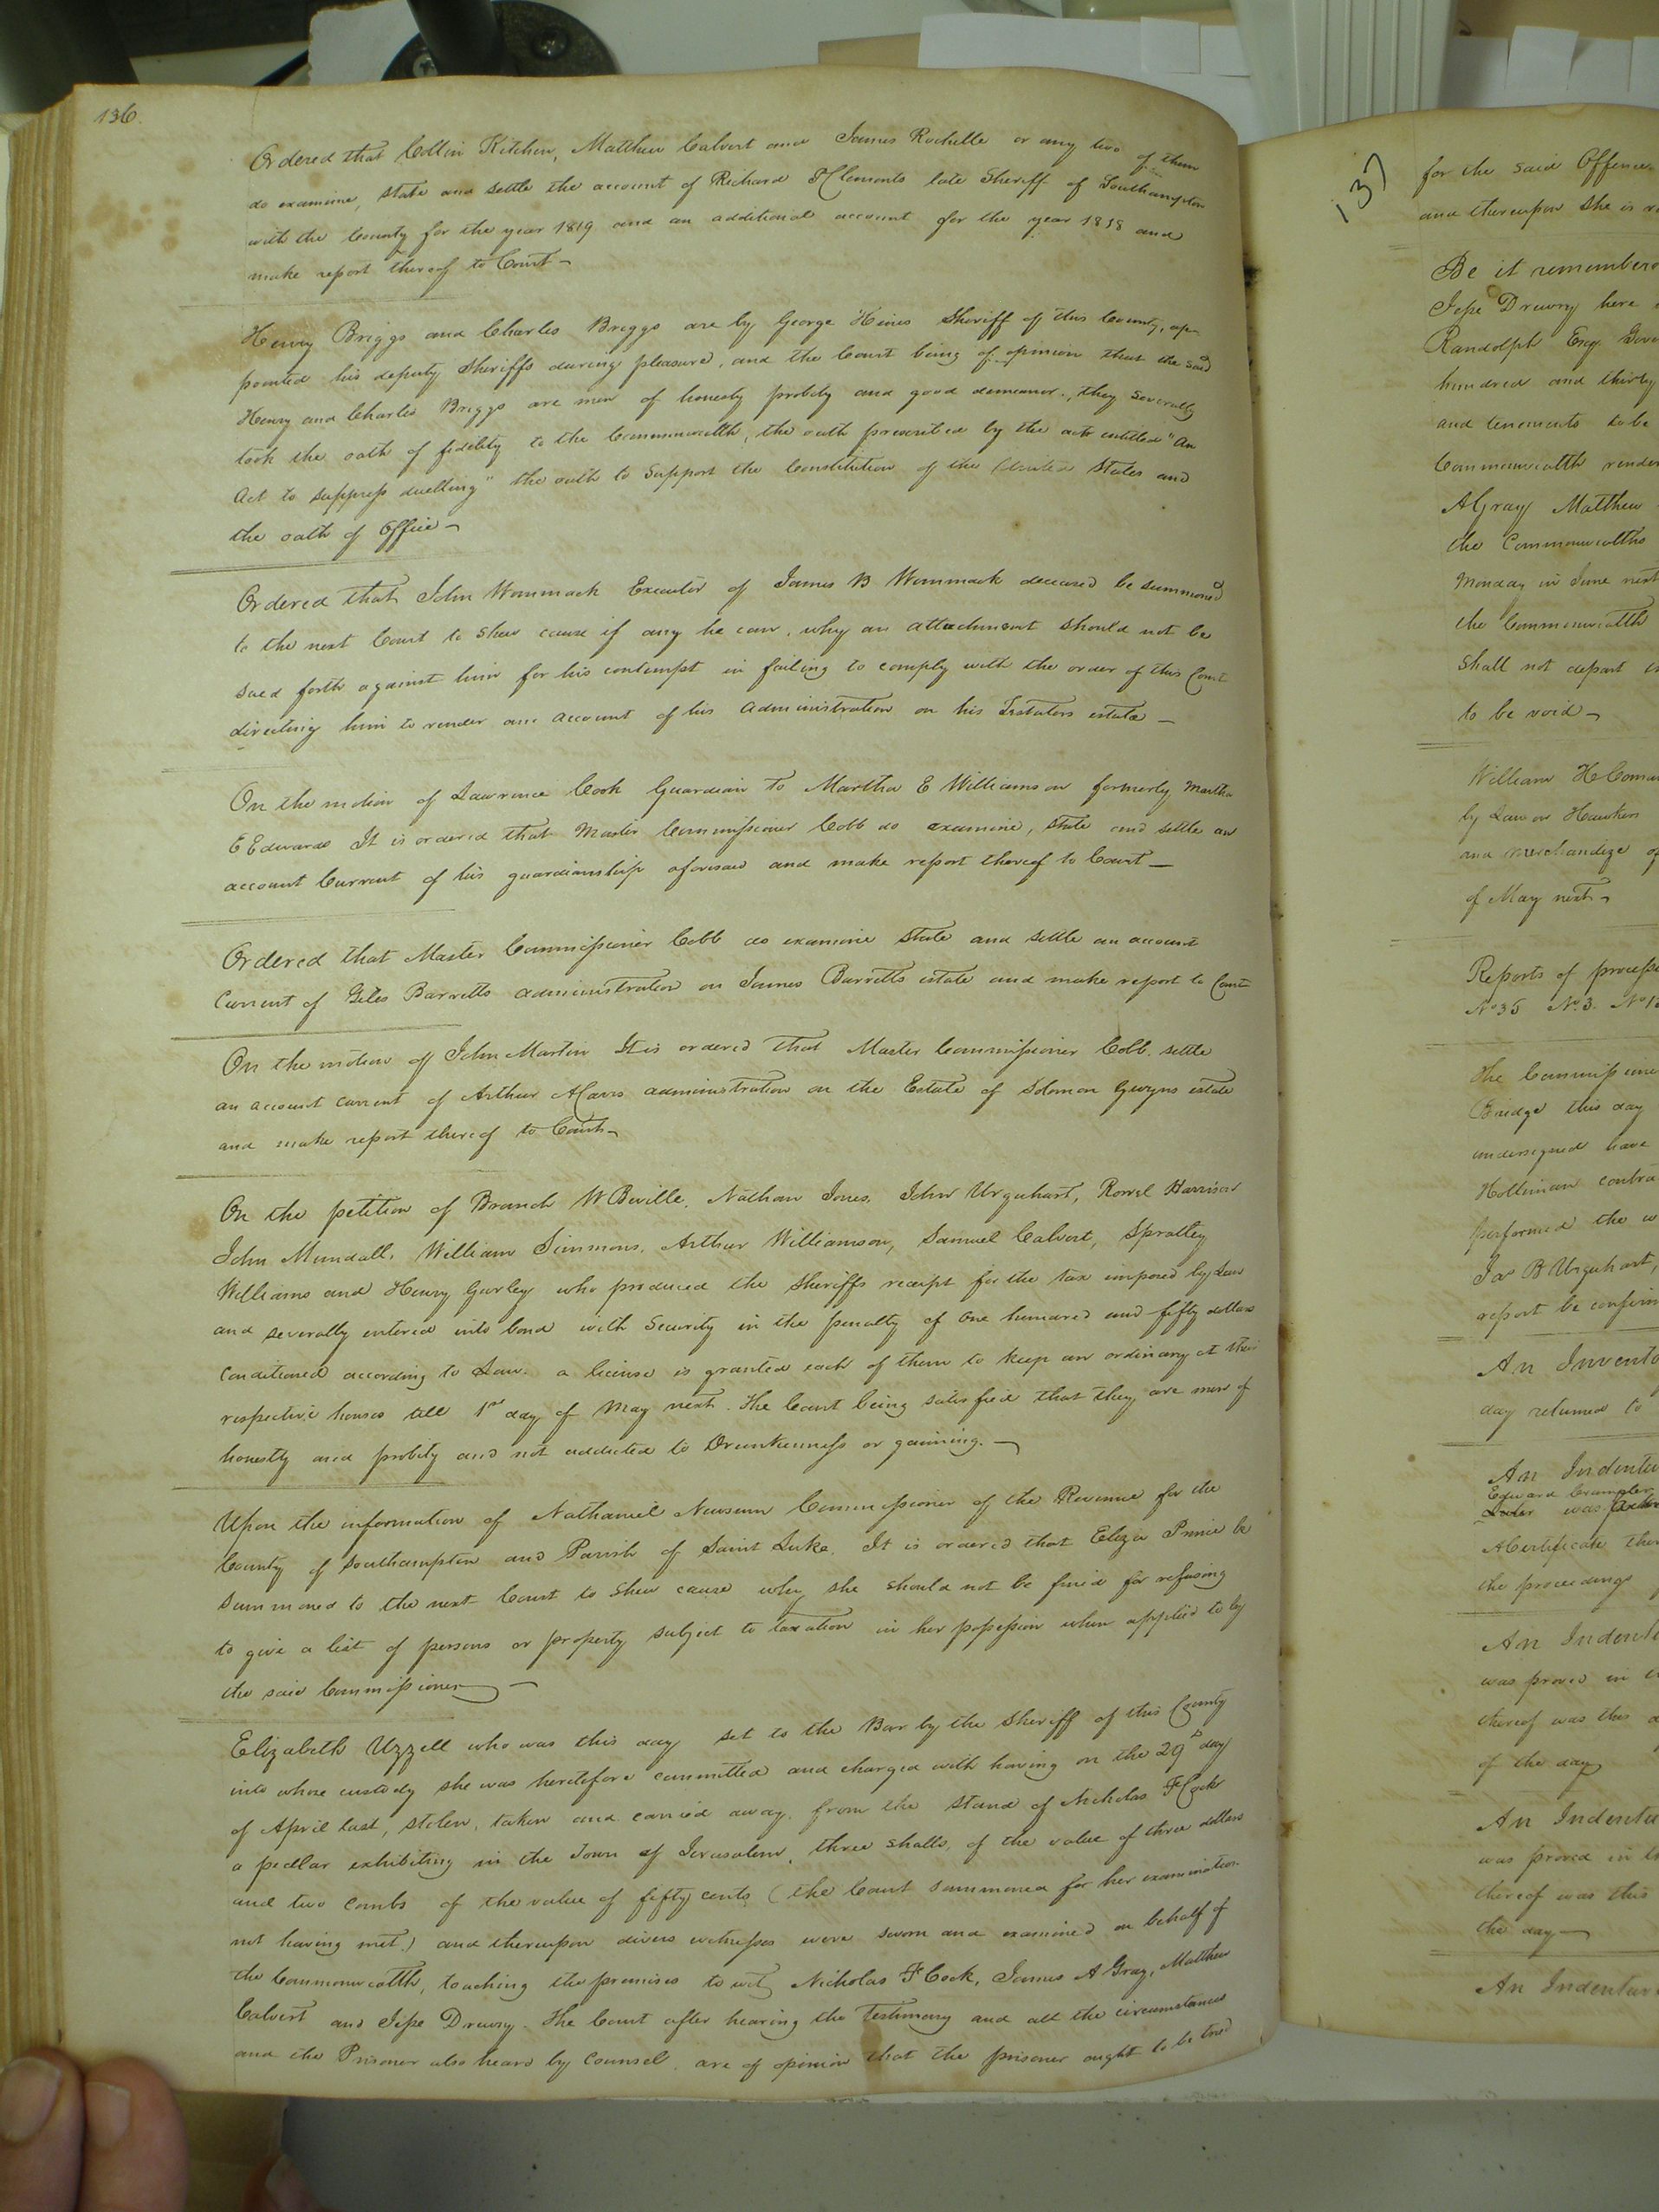 136.
Ordered that Collin Kitchen, Matthew Calvert and James Rochelle or any two of them
do examine, state and settle the account of Richard P Clements late Sheriff of Southampton
with the County for the year 1819 and an additional account for the year 1818 and
make report thereof to Court —
Henry Briggs and Charles Briggs are by George Hines Sheriff of this County, ap-
pointed his deputy Sheriffs during pleasure, and the Court being of opinion that the said
Henry and Charles Briggs are men of honesty probity and good demeanor, they severally
took the oath of fidelity to the Commonwealth, the oath prescribed by the act entitled "An
Act to suppress duelling" the oath to Support the Constitution of the United States and
the oath of Office —
Ordered that John Wommack Executor of James B Wommack deceased be summoned
to the next Court to shew cause if any he can, why an attachment should not be
sued forth against him for his contempt in failing to comply with the order of this Court
directing him to render an account of his administration on his Testators estate —
On the motion of Lawrence Cook Guardian to Martha E Williamson formerly Martha
E Edwards It is ordered that Master Commissioner Cobb do examine, state and settle an
account Current of his guardianship aforesaid and make report thereof to Court —
Ordered that Master Commissioner Cobb do examine state and settle an account
Current of Giles Barretts administration on James Barretts estate and make report to Court
On the motion of John Martin It is ordered that Master Commissioner Cobb settle
an account current of Arthur administration on the Estate of Solomon Gwyns estate
and make report thereof to Court —
On the petition of Branch W Beville, Nathan Jones, John Urquhart, Rowel Harrison
John Mundall, William Simmons, Arthur Williamson, Samuel Calvert, Spratley
Williams and Henry Gurley who produced the Sheriffs receipt for the tax imposed by Law
and severally entered into bond with Security in the penalty of one hundred and fifty dollars
Conditioned according to Law. a license is granted each of them to keep an ordinary at their
respective houses till 1st day of May next. The Court being satisfied that they are men of
honestly and probity and not addicted to Drunkenness or gaming. —
Upon the information of Nathaniel Newsum Commissioner of the Revenue for the
County of Southampton and Parish of Saint Luke. It is ordered that Eliza Prince be
Summoned to the next Court to Shew cause why she should not be fined for refusing
to give a list of persons or property subject to taxation in her possession when applied to by
the said Commissioner —
Elizabeth Uzzell who was this day set to the Bar by the Sheriff of this County
into whose custody she was heretofore committed and charged with having on the 29th day
of April last, stolen, taken and carried away, from the stand of Nicholas F Cock
a pedlar exhibiting in the Town of Jerusalem, three shalls, of the value of three dollars
and two Combs of the value of fifty cents (the Court summoned for her examination
not having met.) and thereupon divers witnesses were sworn and examined on behalf of
the Commonwealth, touching the premises to wit, Nicholas F Cock, James A Gray, Matthew
Calvert and Jesse Drewry. The Court after hearing the Testimony and all the circumstances
and the Prisoner also heard by Counsel, are of opinion that the prisoner ought to be tried
137
for the said Offence
and thereupon she is
Be it remembered
Jesse Drewry here
Randolph Esq. Gov
hundred and thirty
and tenements to be
Commonwealth render
A Gray Matthew
the Commonwealths
Monday in June next
the Commonwealth
shall not depart
to be void —
William H
by Law on Hawkers
and merchandize of
of May next —
Reports of process
No 35 No. 3. No 1
The Commissione
Bridge this day
undersigned have
Holliman contra
performed the w
Jas B Urquhart,
report be confirm
An Invento
day returned to
An Indentu
Edward Crumpler
was
A Certificate ther
the proceedings
An Indentu
was proved in
thereof was this
of the day
An Indentu
was proved in
thereof was this
the day —
An Indentur